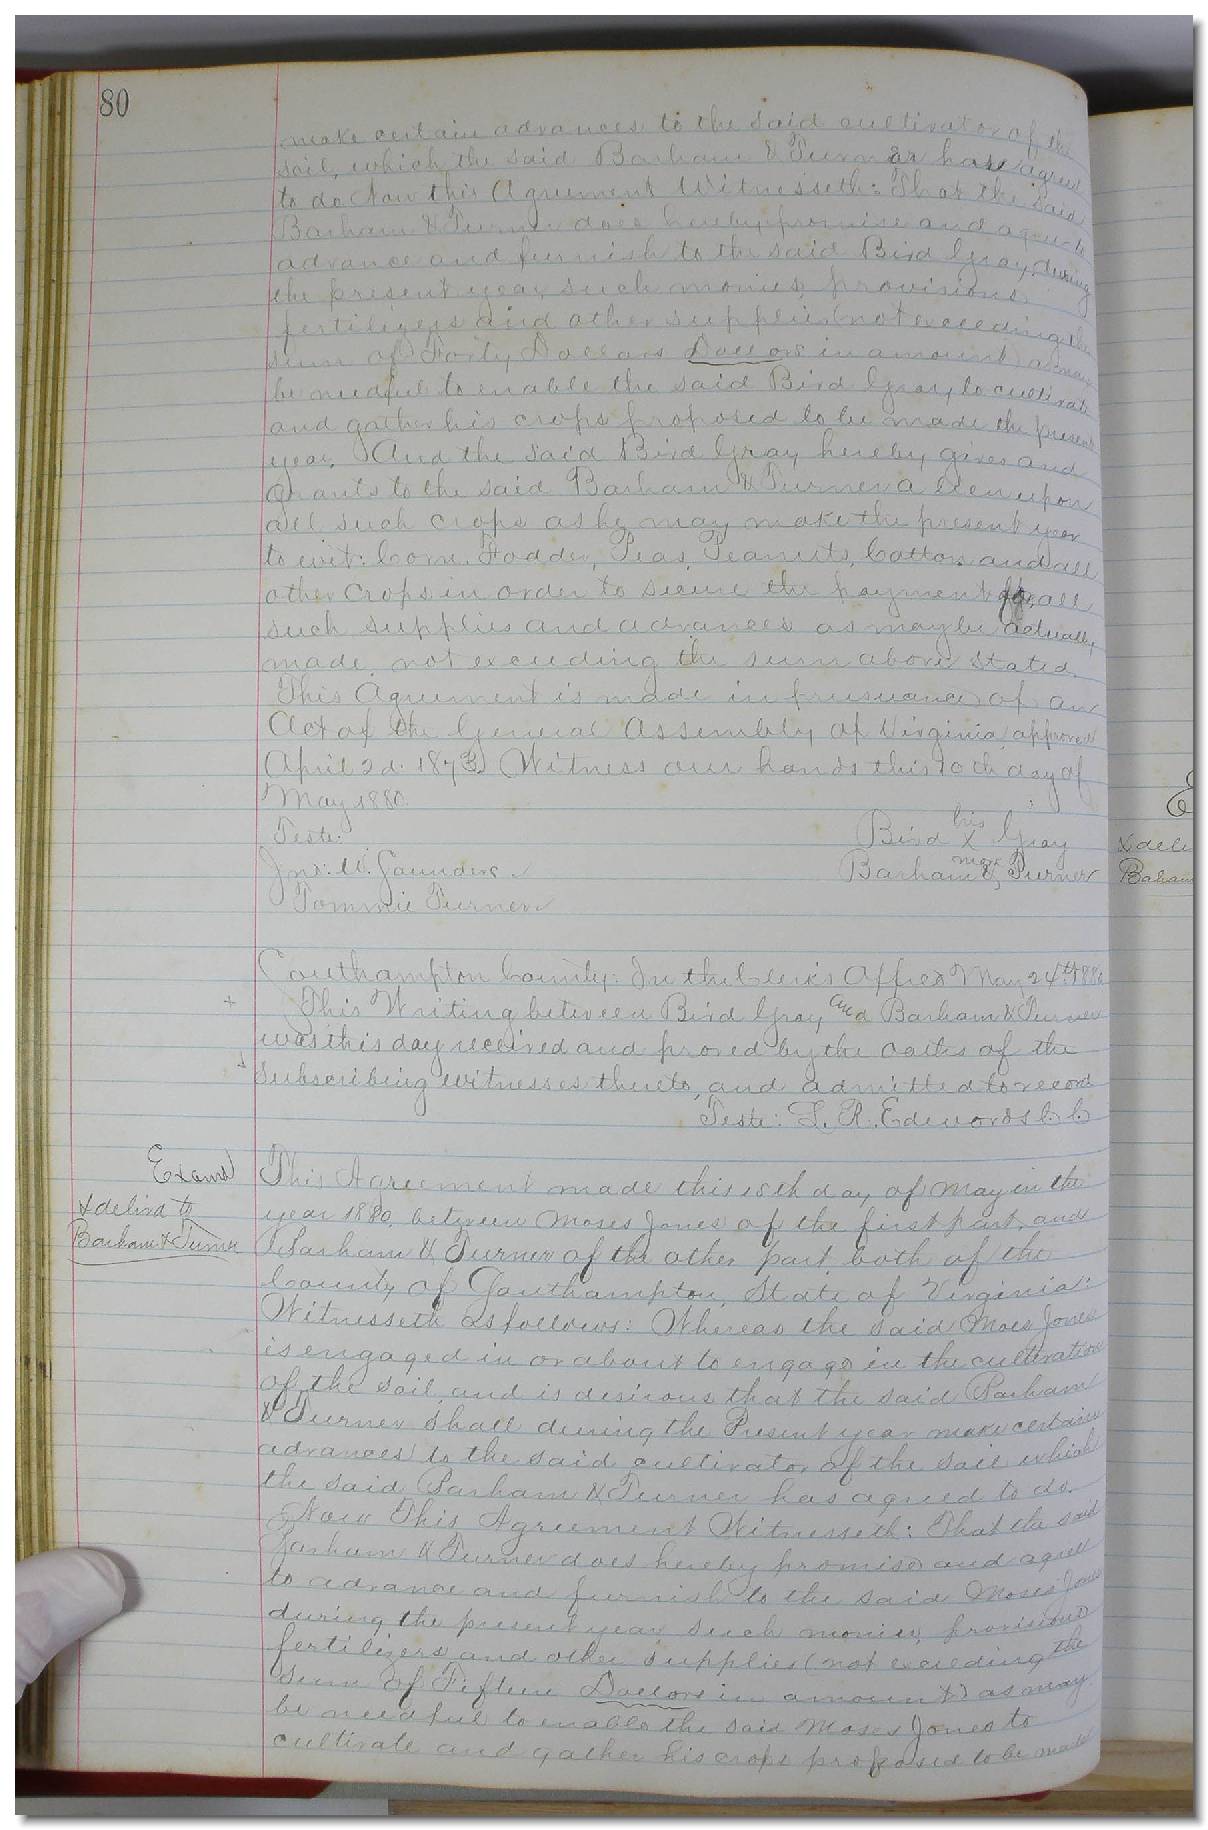 80
make certain advances to the said cultivator of the
soil, which the said Barham & Turner have agreed
to do Now this Agreement Witnesseth: That the said
Barham & Turner does hereby promise and agree to
advance and furnish to the said Bird Gray, during
the present year, such monies, provisions
fertilizers and other supplies (not exceeding the
sum of Forty Dollars Dollors in amount) as may
be needful to enable the said Bird Gray to cultivate
and gather his crops proposed to be made the present
year. And the said Bird Gray hereby gives and
grants to the said Barham & Turner a lien upon
all such crops as he may make the present year
to wit: Corn, Fodder, Peas, Peanuts, Cotton and all
other Crops in order to secure the payment all
such supplies and advances as may be actually
made not exceeding the sum above stated.
This Agreement is made in pursuance of an
Act of the General Assembly of Virginia approved
April 2d. 1873. Witness our hands this 10th day of
May 1880.
Teste:
Bird his x mark Gray
Jno: W. Saunders.
Barham & Turner
Tommie Turner
Southampton County: In the Clerk's Office May 24th 1880
+ This Writing between Bird Gray and Barham & Turner
was this day received and proved by the oaths of the
subscribing witnesses thereto, and admitted to record
Teste: L. R. Edwards C. C
Examd
& delivd to
Barham & Turner
This Agreement made this 15th day of May in the
year 1880, between Moses Jones of the first part, and
Barham & Turner of the other part both of the
County of Southampton, State of Virginia:
Witnesseth as follows: Whereas the said Moses Jones
is engaged in or about to engage in the cultivation
of the soil and is desirous that the said Barham
& Turner shall during the Present year make certain
advances to the said cultivator of the soil which
the said Barham & Turner has agreed to do.
Now This Agreement Witnesseth: That the said
Barham & Turner does hereby promise and agree
to advance and furnish to the said Moses Jones
during the present year such monies, provisions
fertilizers and other supplies (not exceeding the
sum of Fifteen Dollors in amount) as may
be needful to enable the said Moses Jones to
cultivate and gather his crops proposed to be made
& deli
Barham